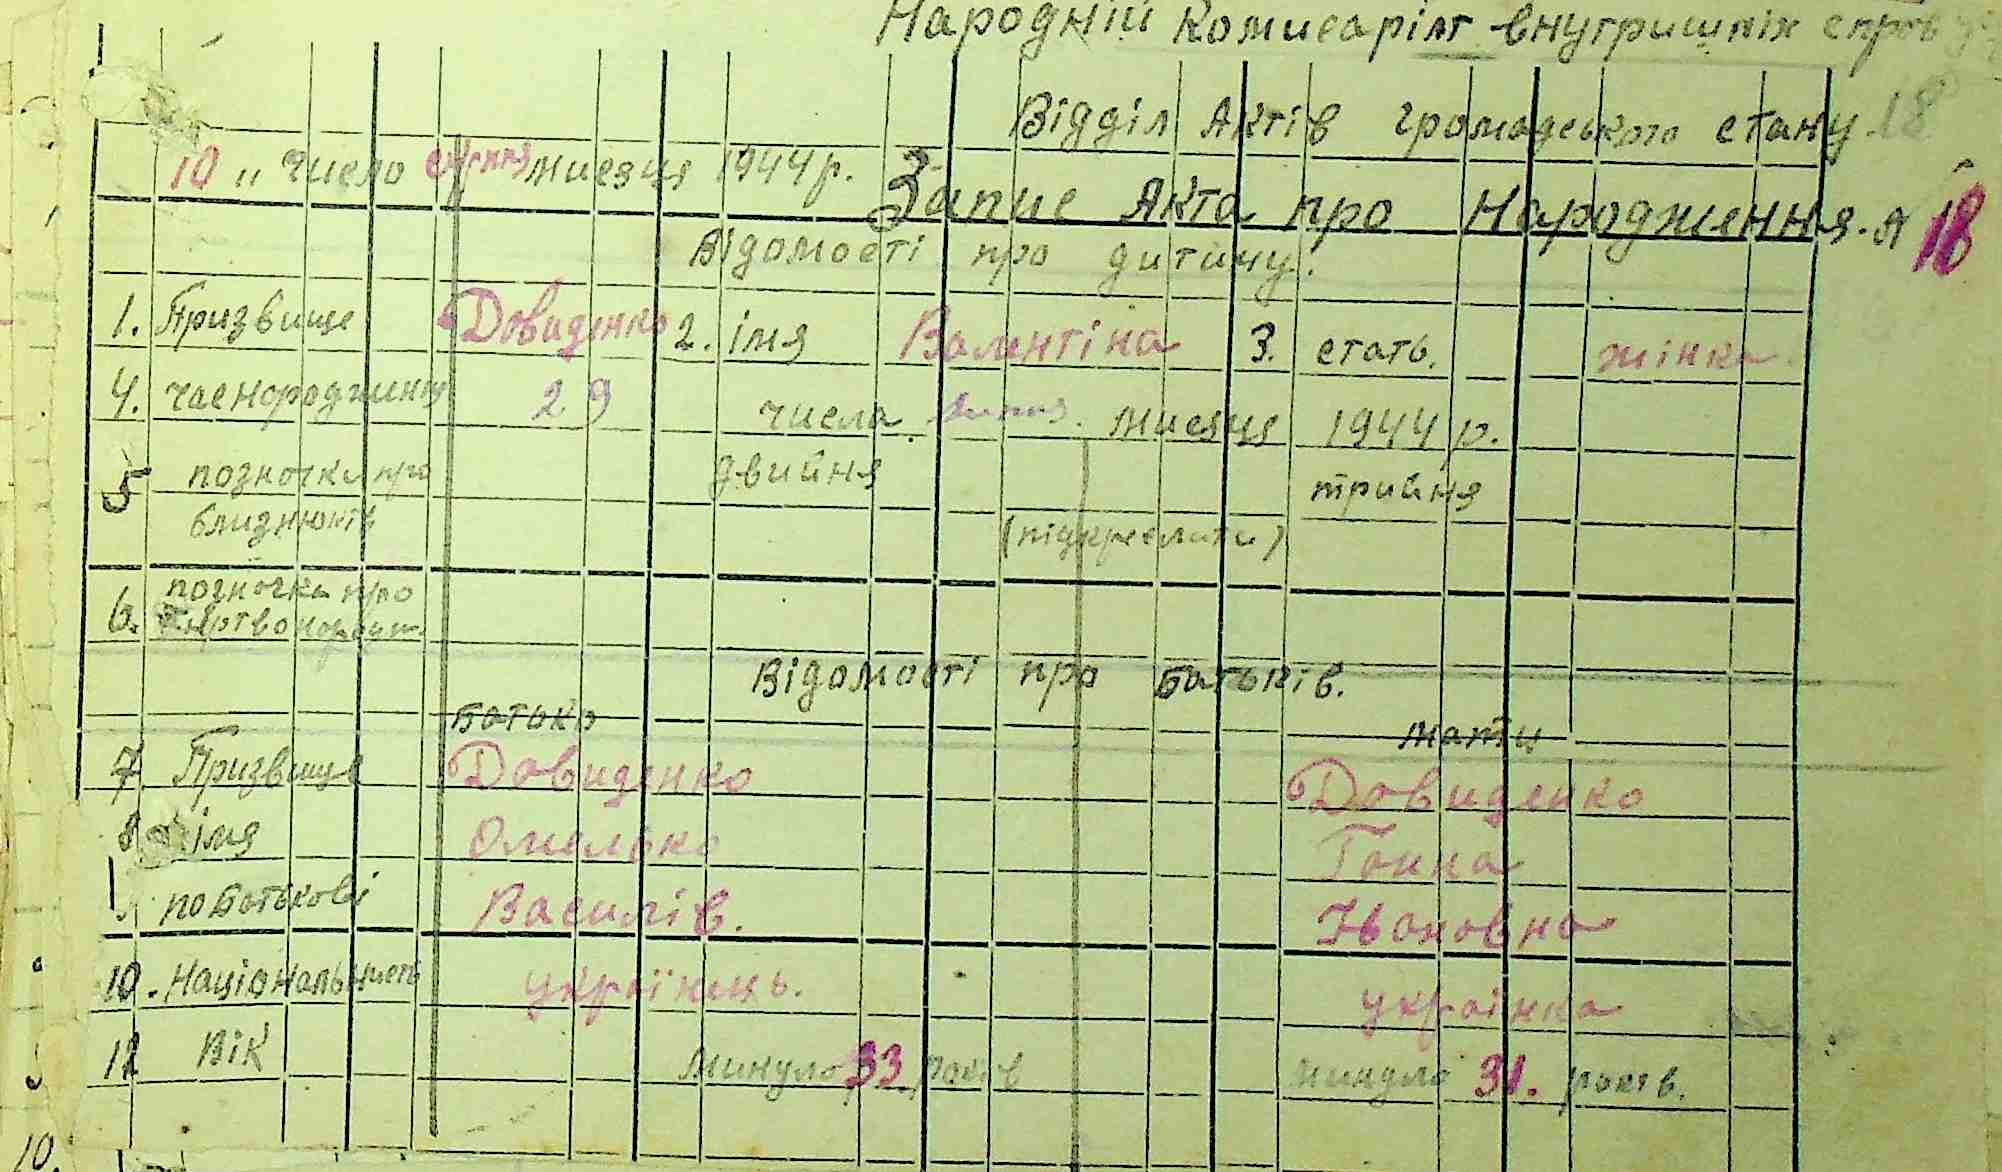 Народній Комисаріят внутришніх справ
Відділ Актів громадського стану 18
10 " число серпня мисяця 1944 р.
Запис Акта про Народження. Я 18
Відомості про дитину.
1. Призвище Довиденко 2. імя Валентіна 3. стать. жінка.
4. час народження 29 числа липня. мисяця 1944 р.
5 позночка про двийня трийня
близнюків (підкреслити)
6. позночка про
мертвонародж.
Відомості про батьків.
батько мати
7. Призвище Довиденко Довиденко
8 імя Омелько Ганна
по батькові Василів. Івановна
10. Національність українець. українка
12 Вік минуло 33 років минуло 31. років.
10.